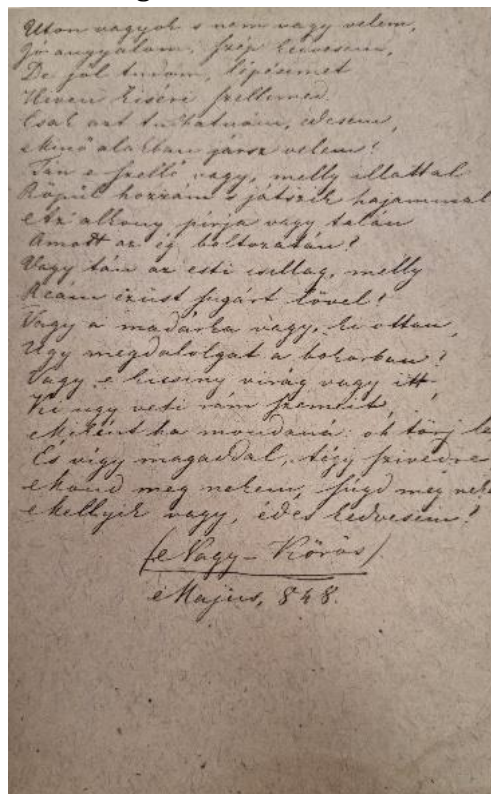 Uton vagyok s nem vagy velem,
Jó angyalom, szép kedvesem,
De jól tudom, lépésimet
Hiven kiséri szellemed.
Csak azt tudhatnám, édesem,
Minő alakban jársz velem?
Tán e szellő vagy, melly illattal
Röpül hozzám s játszik hajammal
Az alkony pirja vagy talán
Amott az ég boltozatán?
Vagy tán az esti csillag, melly
Reám ezüst sugárt lövel?
Vagy a madárka vagy, ki ottan
Ugy megdalolgat a bokorban?
Vagy e kicsiny virág vagy itt
Ki ugy veti rám szemeit,
Miként ha mondaná: oh törj le
És vigy magaddal, tégy szivedre
Mond meg nekem, súgd meg
Mellyik vagy, édes kedvesem?
(Nagy-Körös)
Majus, 848.